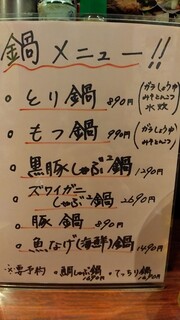 鍋メニュー!!
○ とり鍋 890円 (ガラしょうゆ みそとんこつ 水炊)
○ もつ鍋 990円 (ガラしょうゆ みそとんこつ)
○ 黒豚しゃぶ²鍋 1290円
○ ズワイガニ
しゃぶ²鍋 2690円
○ 豚鍋 890円
○ 魚なげ(海鮮)鍋 1490円
※要予約 ○鯛しゃぶ鍋 ○てっちり鍋